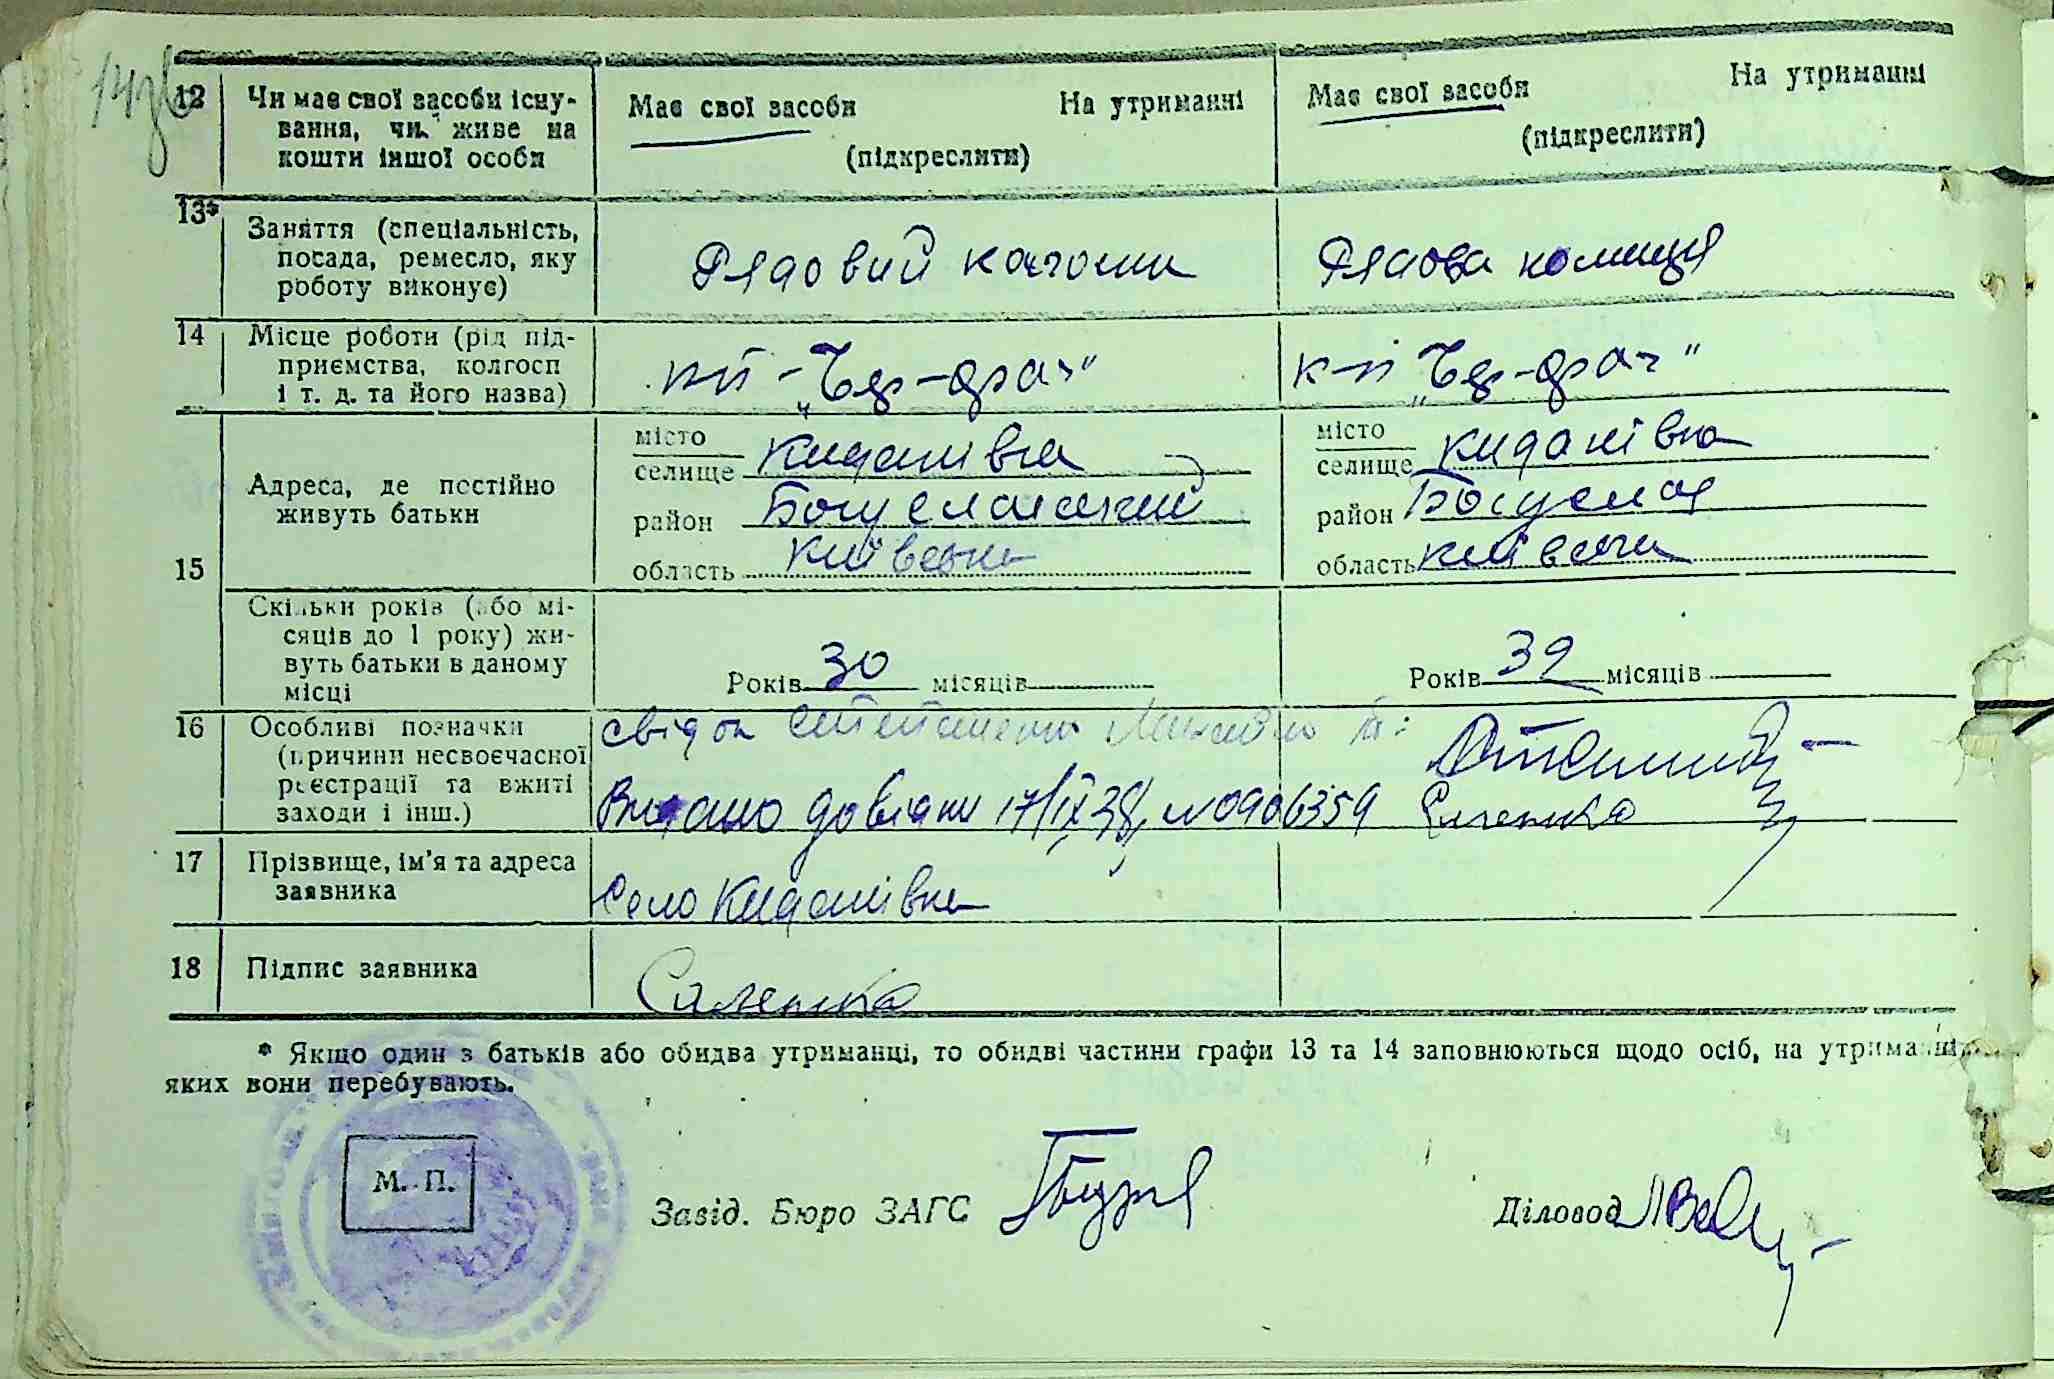 12 Чи має свої засоби існу-
вання, чи живе на
кошти іншої особи
Має свої засоби На утриманні
(підкреслити)
Має свої засоби На утриманні
(підкреслити)
13* Заняття (спеціальність,
посада, ремесло, яку
роботу виконує)
Рядовий
Рядова
14 Місце роботи (рід під-
приємства, колгосп
і т. д. та його назва)
15 Адреса, де постійно
живуть батьки
місто
селище Киданівка
район Богуславський
область Київська
місто
селище Киданівка
район Богуслав
область Київська
Скільки років (або мі-
сяців до 1 року) жи-
вуть батьки в даному
місці
Років 30 місяців
Років 39 місяців
16 Особливі позначки
(причини несвоєчасної
реєстрації та вжиті
заходи і інш.)
свідок
Видано довідки 17/IX 38, N0906359
17 Прізвище, ім'я та адреса
заявника
Село Киданівка
18 Підпис заявника
* Якщо один з батьків або обидва утриманці, то обидві частини графи 13 та 14 заповнюються щодо осіб, на утриманні
яких вони перебувають.
М. П.
Завід. Бюро ЗАГС
Діловод